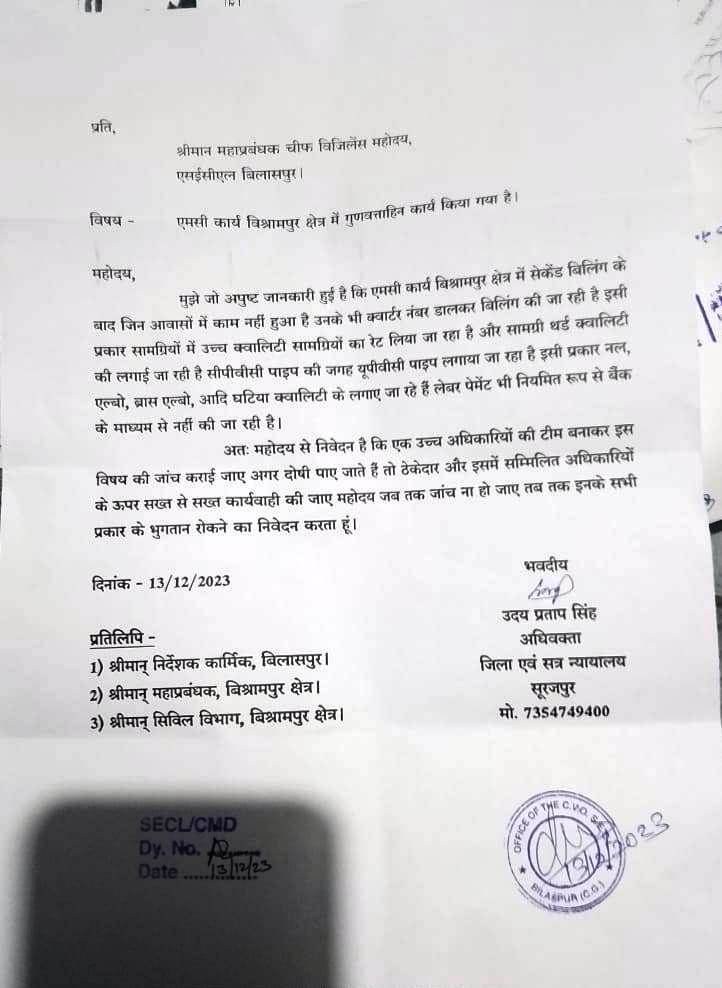 प्रति,
श्रीमान महाप्रबंधक चीफ विजिलेंस महोदय,
एसईसीएल बिलासपुर।
विषय - एमसी कार्य विश्रामपुर क्षेत्र में गुणवत्ताहिन कार्य किया गया है।
महोदय,
मुझे जो अपुष्ट जानकारी हुई है कि एमसी कार्य बिश्रामपुर क्षेत्र में सेकेंड बिलिंग के
बाद जिन आवासों में काम नहीं हुआ है उनके भी क्वार्टर नंबर डालकर बिलिंग की जा रही है इसी
प्रकार सामग्रियों में उच्च क्वालिटी सामग्रियों का रेट लिया जा रहा है और सामग्री थर्ड क्वालिटी
की लगाई जा रही है सीपीवीसी पाइप की जगह यूपीवीसी पाइप लगाया जा रहा है इसी प्रकार नल,
एल्बो, ब्रास एल्बो, आदि घटिया क्वालिटी के लगाए जा रहे हैं लेबर पेमेंट भी नियमित रूप से बैंक
के माध्यम से नहीं की जा रही है।
अतः महोदय से निवेदन है कि एक उच्च अधिकारियों की टीम बनाकर इस
विषय की जांच कराई जाए अगर दोषी पाए जाते हैं तो ठेकेदार और इसमें सम्मिलित अधिकारियों
के ऊपर सख्त से सख्त कार्यवाही की जाए महोदय जब तक जांच ना हो जाए तब तक इनके सभी
प्रकार के भुगतान रोकने का निवेदन करता हूं।
दिनांक - 13/12/2023
भवदीय
उदय प्रताप सिंह
अधिवक्ता
जिला एवं सत्र न्यायालय
सूरजपुर
मो. 7354749400
प्रतिलिपि -
1) श्रीमान् निर्देशक कार्मिक, बिलासपुर।
2) श्रीमान् महाप्रबंधक, बिश्रामपुर क्षेत्र।
3) श्रीमान् सिविल विभाग, बिश्रामपुर क्षेत्र।
SECL/CMD
Dy. No.
Date 13/12/23
OFFICE OF THE C.V.O.
13/12/2023
BILASPUR (C.G.)